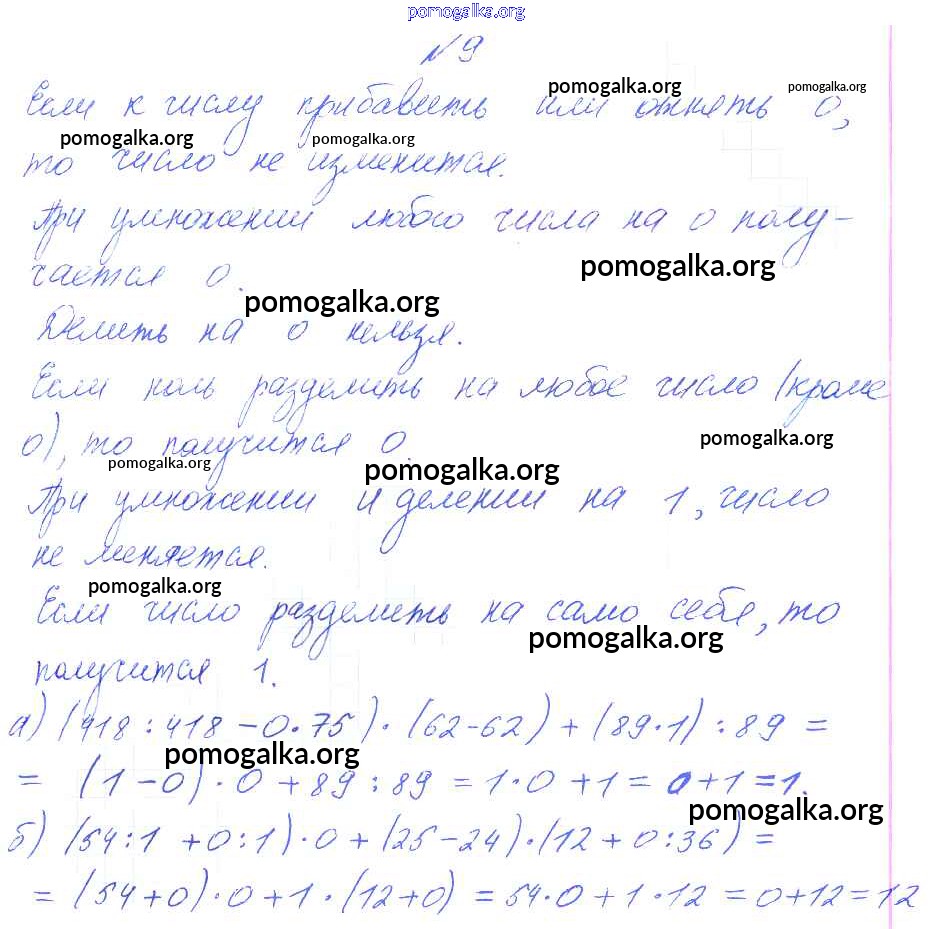 pomogalka.org
№ 9
Если к числу прибавить или отнять 0,
pomogalka.org pomogalka.org
pomogalka.org pomogalka.org
то число не изменится.
При умножении любого числа на 0 полу-
pomogalka.org
чается 0.
pomogalka.org
Делить на 0 нельзя.
Если ноль разделить на любое число (кроме
0), то получится 0.
pomogalka.org
pomogalka.org pomogalka.org
При умножении и делении на 1, число
не меняется.
pomogalka.org
Если число разделить на само себя, то
pomogalka.org
получится 1.
а) (418 : 418 - 0 · 75) · (62 - 62) + (89 · 1) : 89 =
pomogalka.org
= (1 - 0) · 0 + 89 : 89 = 1 · 0 + 1 = 0 + 1 = 1.
pomogalka.org
б) (54 : 1 + 0 : 1) · 0 + (25 - 24) · (12 + 0 : 36) =
= (54 + 0) · 0 + 1 · (12 + 0) = 54 · 0 + 1 · 12 = 0 + 12 = 12